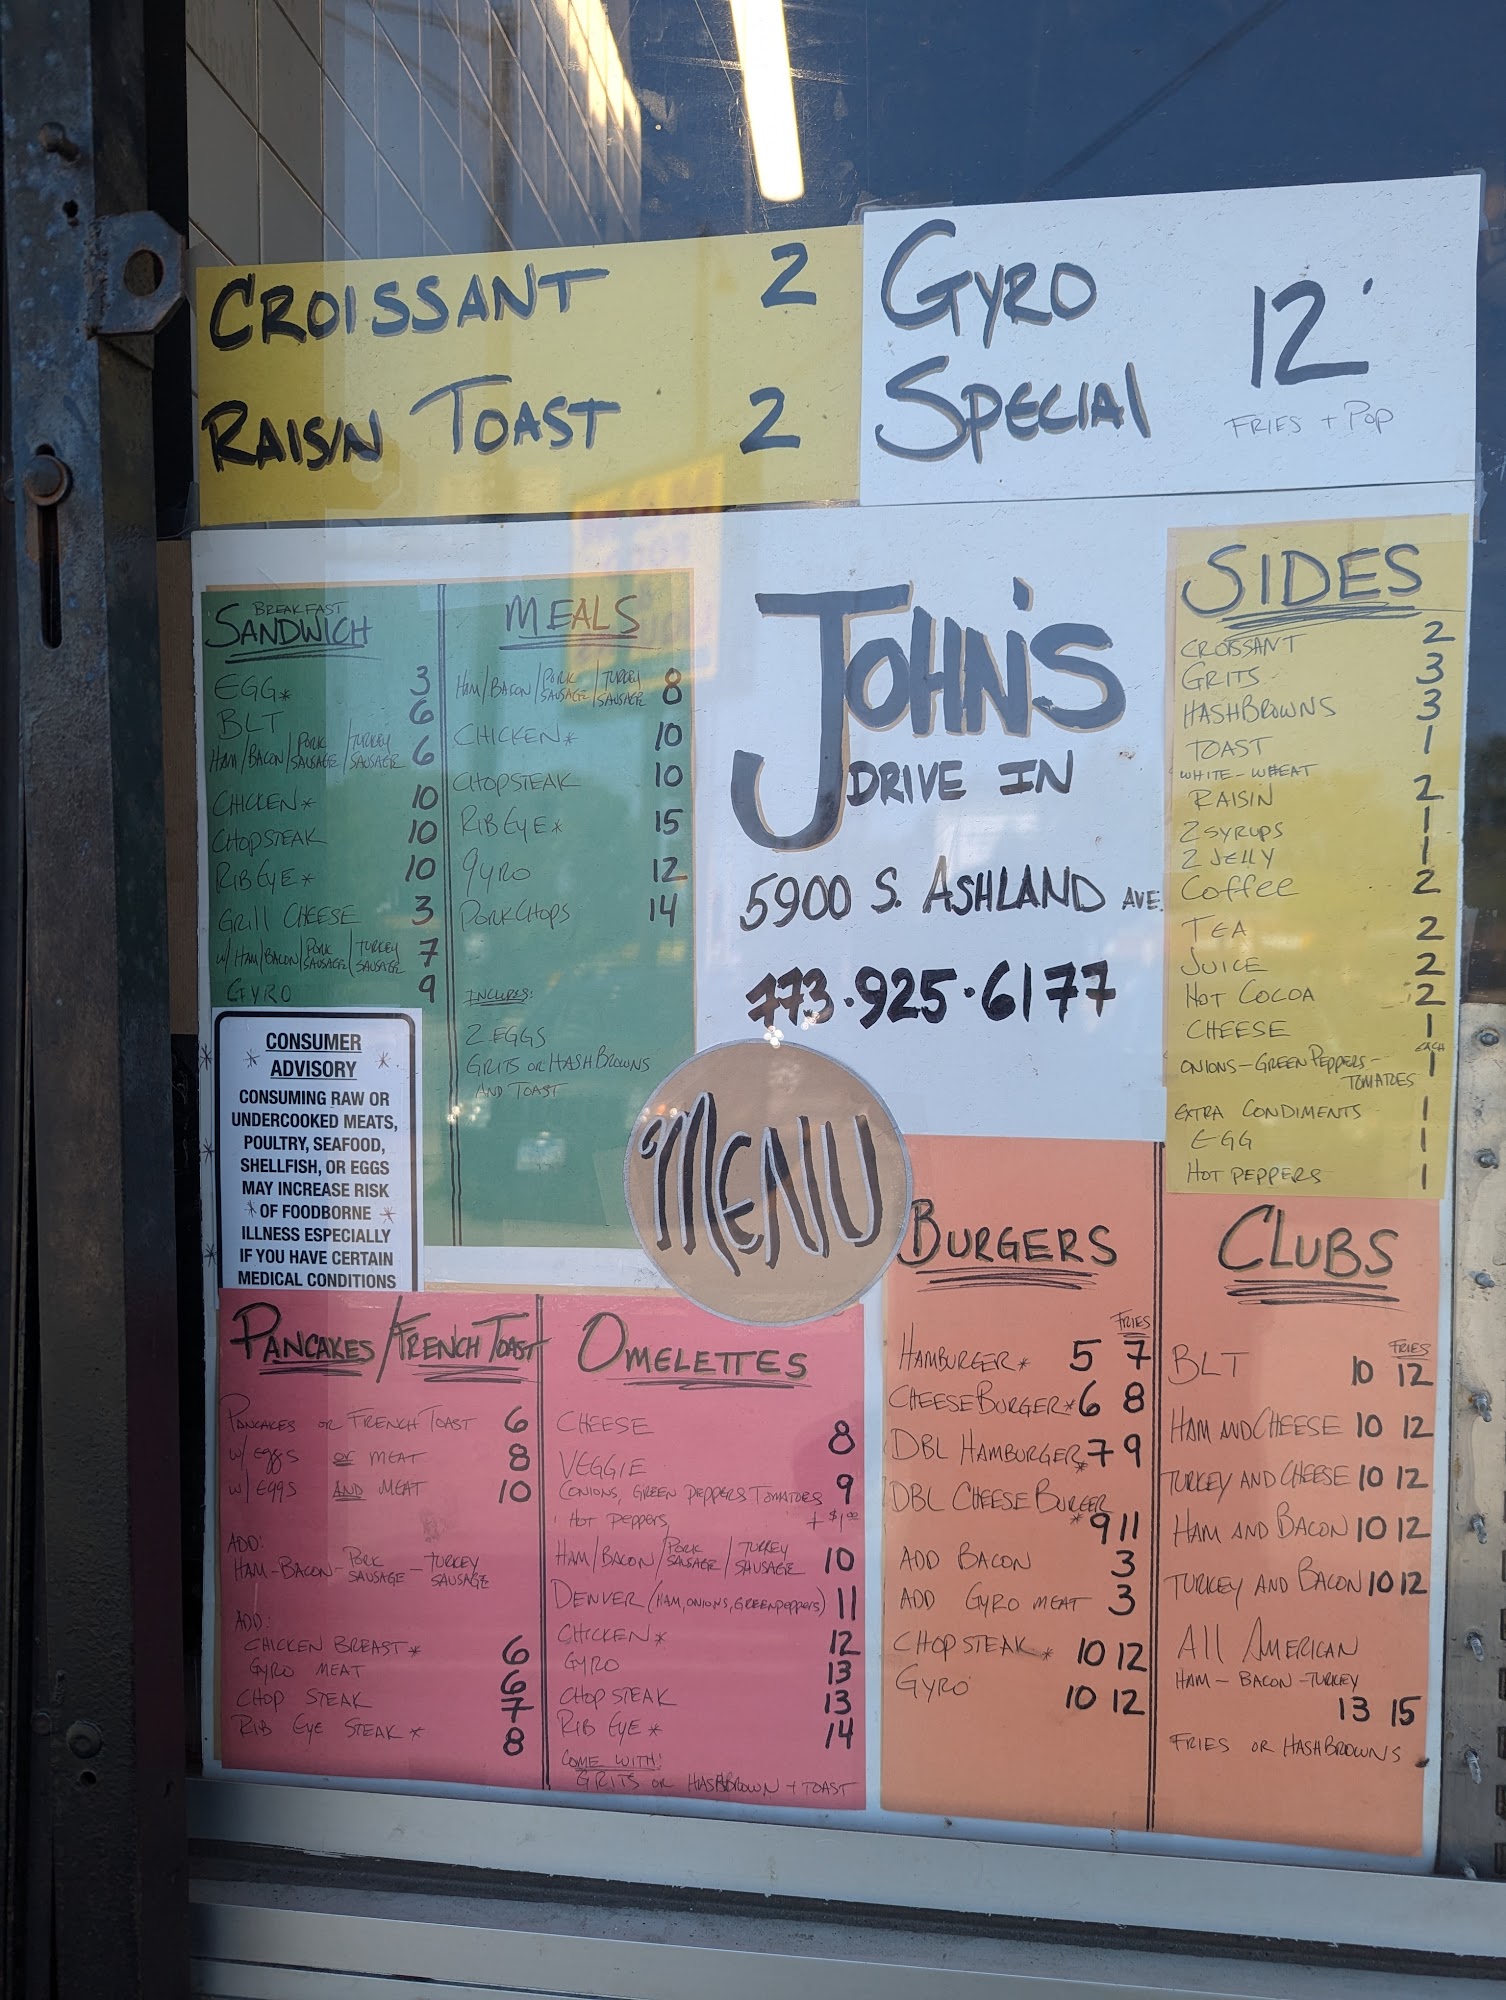 CROISSANT 2
RAISIN TOAST 2
GYRO
SPECIAL 12
FRIES + POP
BREAKFAST
SANDWICH
EGG* 3
BLT 6
HAM/BACON/PORK SAUSAGE/TURKEY SAUSAGE 6
CHICKEN* 10
CHOPSTEAK 10
RIBEYE* 10
GRILL CHEESE 3
W/ HAM/BACON/PORK SAUSAGE/TURKEY SAUSAGE 7
GYRO 9
MEALS
HAM/BACON/PORK SAUSAGE/TURKEY SAUSAGE 8
CHICKEN* 10
CHOPSTEAK 10
RIBEYE* 15
GYRO 12
PORKCHOPS 14
INCLUDES:
2 EGGS
GRITS OR HASHBROWNS
AND TOAST
JOHN'S
DRIVE IN
5900 S. ASHLAND AVE.
773.925.6177
MENU
SIDES
CROISSANT 2
GRITS 3
HASHBROWNS 3
TOAST 1
WHITE-WHEAT
RAISIN 2
2 SYRUPS 1
2 JELLY 1
COFFEE 2
TEA 2
JUICE 2
HOT COCOA 2
CHEESE 1
EACH
ONIONS-GREEN PEPPERS-
TOMATOES 1
EXTRA CONDIMENTS 1
EGG 1
HOT PEPPERS 1
* CONSUMER
* ADVISORY *
CONSUMING RAW OR
UNDERCOOKED MEATS,
POULTRY, SEAFOOD,
* SHELLFISH, OR EGGS
MAY INCREASE RISK
* OF FOODBORNE *
ILLNESS ESPECIALLY
* IF YOU HAVE CERTAIN
MEDICAL CONDITIONS
PANCAKES/FRENCH TOAST
PANCAKES OR FRENCH TOAST 6
W/ EGGS OR MEAT 8
W/ EGGS AND MEAT 10
ADD:
HAM-BACON-PORK SAUSAGE-TURKEY SAUSAGE
ADD:
CHICKEN BREAST* 6
GYRO MEAT 6
CHOP STEAK 7
RIB EYE STEAK* 8
OMELETTES
CHEESE 8
VEGGIE
(ONIONS, GREEN PEPPERS TOMATOES 9
HOT PEPPERS, + $1.00
HAM/BACON/PORK SAUSAGE/TURKEY SAUSAGE 10
DENVER (HAM, ONIONS, GREENPEPPERS) 11
CHICKEN* 12
GYRO 13
CHOP STEAK 13
RIB EYE* 14
COME WITH:
GRITS OR HASHBROWN + TOAST
BURGERS
FRIES
HAMBURGER* 5 7
CHEESEBURGER* 6 8
DBL HAMBURGER* 7 9
DBL CHEESEBURGER
* 9 11
ADD BACON 3
ADD GYRO MEAT 3
CHOPSTEAK* 10 12
GYRO 10 12
CLUBS
FRIES
BLT 10 12
HAM AND CHEESE 10 12
TURKEY AND CHEESE 10 12
HAM AND BACON 10 12
TURKEY AND BACON 10 12
ALL AMERICAN
HAM-BACON-TURKEY
13 15
FRIES OR HASHBROWNS